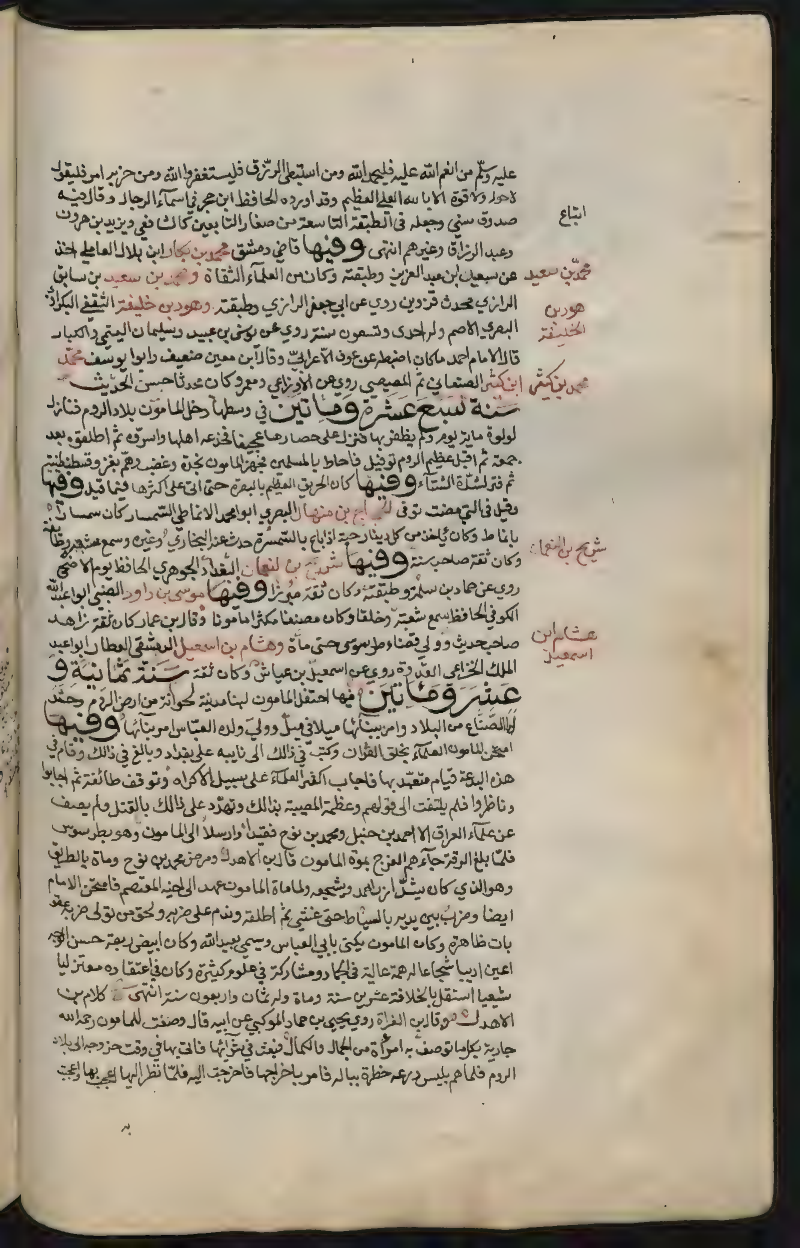 عليه وسلم من انعم الله عليه فليحمد الله ومن استبطى الرزق فليستغفر الله ومن حزبه امر فليقول
لا حول ولا قوة الا بالله العلي العظيم وقد اورده الحافظ ابن حجر في اسماء الرجال وقال فيه
صدوق سني وجعله في الطبقة التاسعة من صغار التابعين كالشافعي ويزيد بن هرون
اتباع
وعبد الرزاق وغيرهم انتهى وفيها قاضي دمشق محمد بن بكار ابن بلال العاملي اخذ
عن سعيد ابن عبد العزيز وطبقته وكان من العلماء الثقاة ومحمد بن سعيد بن سابق
محمد بن سعيد
الرازي محدث قزوين روى عن ابي جعفر الرازي وطبقته وهود بن خليفة الثقفي البكراوي
هود بن
الخليفة
البصري الاصم وله احدى وتسعون سنة روى عن يونس بن عبيد وسليمان التيمي والكبار
قال الامام احمد ما كان اضبطه عن عوف الاعرابي وقال ابن معين ضعيف وابو يوسف محمد
ابن كثير الصنعاني ثم المصيصي روى عن الاوزاعي ومعمر وكان محدثا حسن الحديث
محمد بن كثير
سنة سبع عشرة ومائتين في وسطها دخل المامون بلاد الروم فنازل
لولوة ماية يوم ولم يظفر بها فنزل على حصارها عجيفا فخدعه اهلها واسروه ثم اطلقوه بعد
جمعة ثم اقبل عظيم الروم توفيل فاحاط بالمسلمين فجهز المامون نجدة وغضب وهم بغزو قسطنطينية
ثم فتر لشدة الشتاء وفيها كان الحريق العظيم بالبصرة حتى اتى على اكثرها فيما قيل وفيها
وقيل في التي مضت توفى الحجاج بن منهال البصري ابو محمد الانماطي السمسار كان سمسارا
ياخذ من كل دينار حبة اذا باع بالسمسرة حدث عنه البخاري وغيره وسمع شعبة وطائفة
وكان ثقة صاحب سنة وفيها شريح بن النعمان البغدادي الجوهري الحافظ يوم الاضحى
شريح بن النعمان
روى عن حماد بن سلمة وطبقته وكان ثقة مبرزا وفيها موسى بن داود الضبي ابو عبد الله
الكوفي الحافظ سمع شعبة وخلقا وكان مصنفا مكثرا مامونا وقال بن عمار كان ثقة زاهد
صاحب حديث وولي قضاء طرسوس حتى مات وهشام بن اسمعيل الدمشقي العطار ابو عبد
هشام ابن
اسمعيل
الملك الخزاعي القدوة روى عن اسمعيل بن عياش وكان ثقة سنة ثمانية و
عشر ومائتين فيها احتفل المامون لبناء مدينة طوانة من ارض الروم وحشد
لها الصناع من البلاد وامر ببنائها ميلا في ميل وولي ولده العباس امر بنائها وفيها
امتحن المامون العلماء بخلق القران وكتب في ذلك الى نايبه على بغداد وبالغ في ذلك وقام في
هذه البدعة قيام متعبد بها فاجاب اكثر العلماء على سبيل الاكراه وتوقف طائفة ثم اجابوا
وناظروا فلم يلتفت الى قولهم وعظمت المصيبة بذلك وتهدد على ذلك بالقتل ولم يصف
من علماء العراق الا احمد بن حنبل ومحمد بن نوح فقيدا وارسلا الى المامون وهو بطرسوس
فلما بلغ الرقة جاءهم الفرج بموت المامون قال ابن الاهدل ومرض محمد بن نوح ومات بالطريق
وهو الذي كان يشد ازر احمد ويشجعه ولما مات المامون عهد الى اخيه المعتصم فامتحن الامام
ايضا وضرب بين يديه بالسياط حتى غشي ثم اطلقه وندم على ضربه ولحق من تولى ضربه عقو
بات ظاهرة وكان المامون يكنى بابي العباس وسمي بعبد الله وكان ابيض ربعة حسن الوجه
اعين اديبا شجاعا له همة عالية في الجهاد ومشاركة في علوم كثيرة وكان في اعتقاده معتزليا
شيعيا استقل بالخلافة عشرين سنة ومات وله ثمان واربعون سنة انتهى كلام بن
الاهدل وقال بن الفرات روى يحيى بن حماد الموكبي عن ابيه قال وصفت للمامون رحمه الله
جارية بكل ما توصف به امراة من الجمال والكمال فبعث في شرائها فاتى بها في وقت خروجه الى بلاد
الروم فلما هم بلبس درعه خطرت بباله فامر باخراجها فاخرجت اليه فلما نظر اليها اعجب بها واعجبت
به